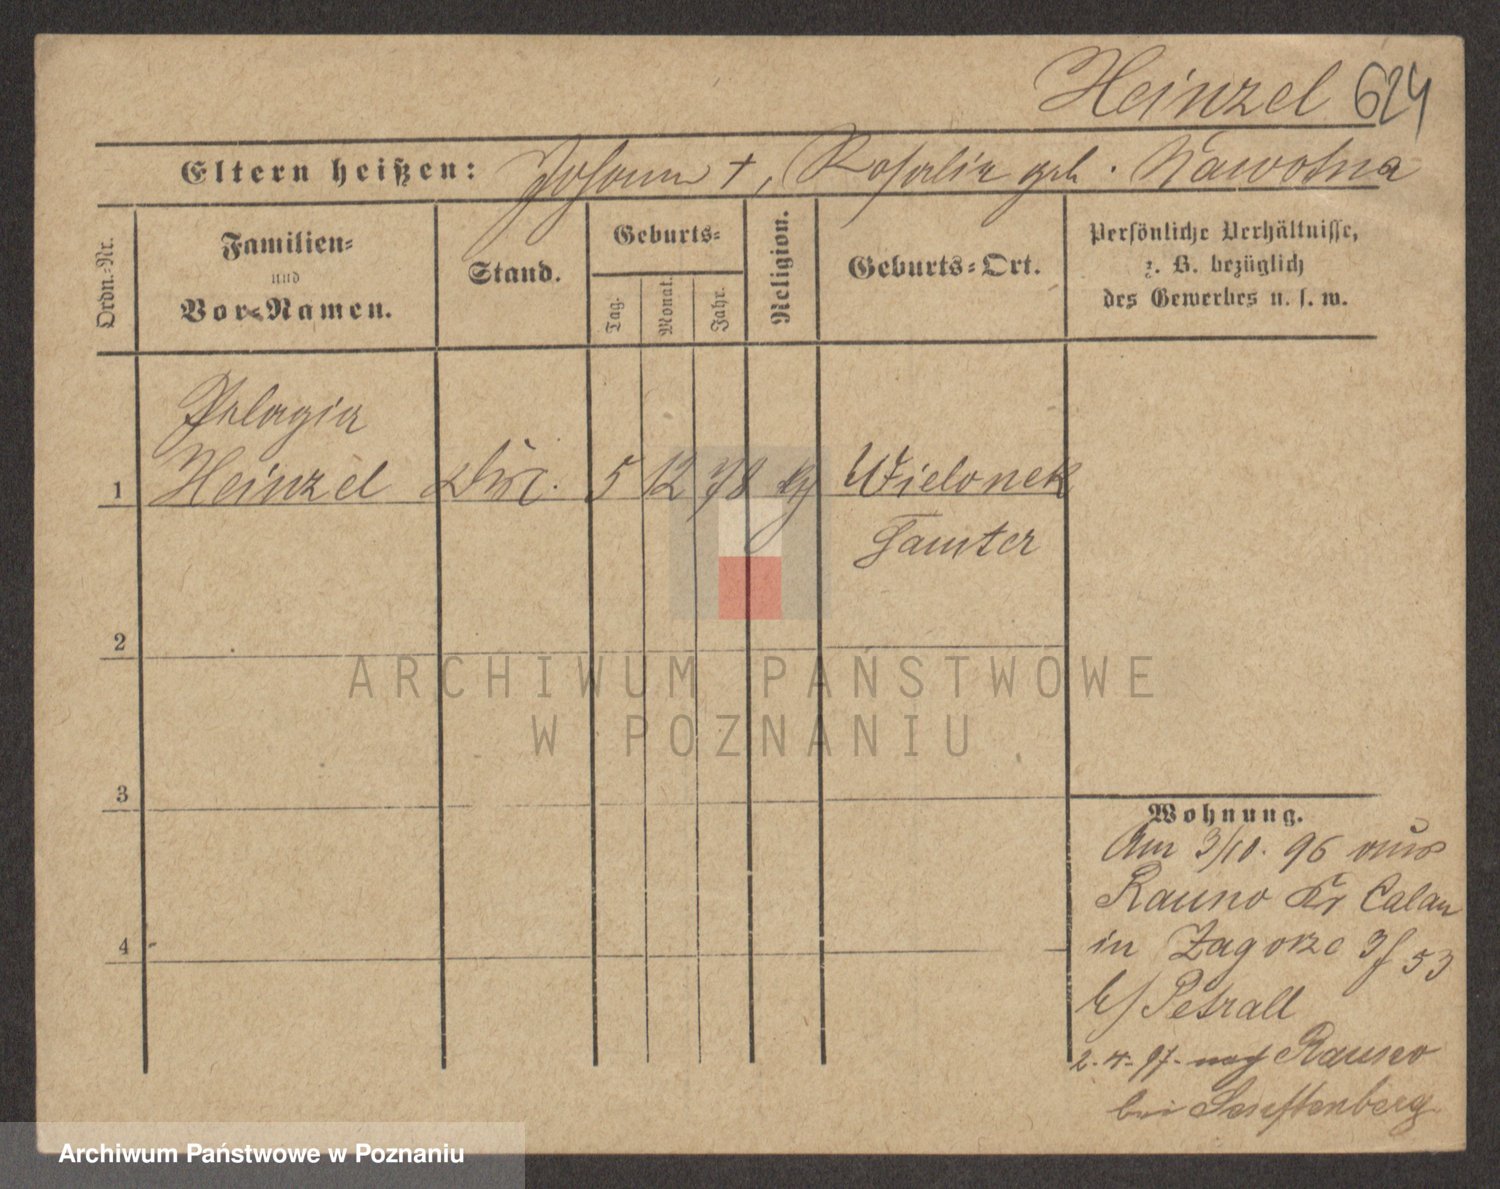 Heinzel 624
Eltern heißen: Johann +, Rosalia geb. Nawotna
Ordn.-Nr.
Familien-
und
Vor-Namen.
Stand.
Geburts-
Tag.
Monat.
Jahr.
Religion.
Geburts-Ort.
Persönliche Verhältnisse,
z. B. bezüglich
des Gewerbes u. s. w.
Pelagia
1 Heinzel 5 12 78 Wielonek
Samter
2
3
4
ARCHIWUM PAŃSTWOWE
W POZNANIU
Wohnung.
Am 3/10. 96 aus
Rauno Kr Calau
in Zagorze 53
b/ Petrall
2. 4. 97. nach Rauno
bei Senftenberg
Archiwum Państwowe w Poznaniu